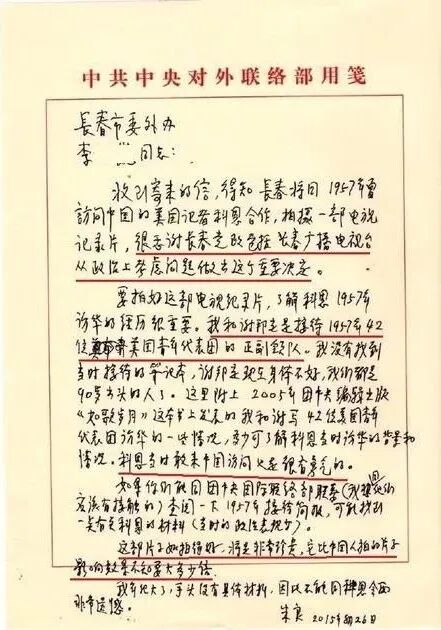 中共中央对外联络部用笺
長春市委外办
李 同志:
收到寄来的信,得知長春将同1957年曾
訪问中国的美国记者科恩合作,拍摄一部电视
记录片,很感谢長春党政包括長春广播电视台
从政治上考虑问题做出这个重要决定。
要拍好这部电视纪录片,了解科恩1957年
訪华的经历很重要。我和谢邦定是接待1957年42
位美国青年代表团的正副领队。我没有找到
当时接待的笔记本,谢邦定现在身体不好,我们都是
90岁出头的人了。这里附上2005年团中央编辑出版
《如歌岁月》这本书上发表的我和谢写42位美国青年
代表团访华的一些情况,多少可了解科恩当时访华的背景和
情况。科恩当时敢来中国访问也是很有勇气的。
如果你们能同团中央国际联络部联系(我
应该有接触的)查阅一下1957年接待简报,可能找到
一些有关科恩的材料(当时的政治表现等)
这部片子如拍得好,将是非常珍贵,它比中国人拍的片子
影响效果不知要大多少倍。
我年纪大了,手头没有具体材料,因此不能同科恩会面
非常遗憾。
朱良 2015年8月26日